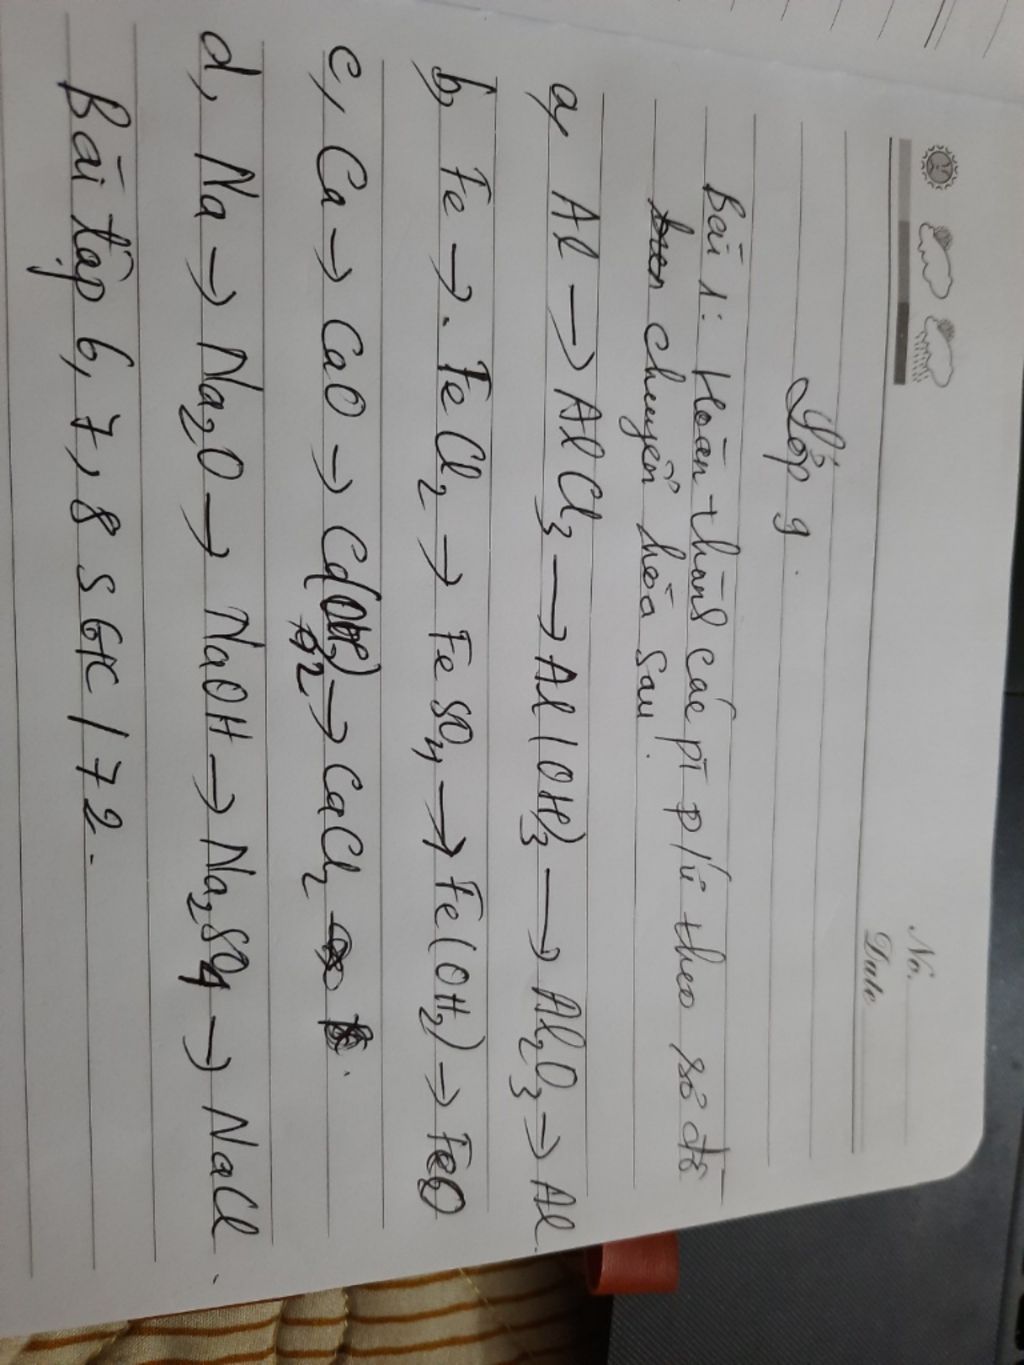 No.
Date
Lớp 9.
Bài 1: Hoàn thành các pt p/ứ theo sơ đồ
chuyển hóa sau.
a, Al → AlCl3 → Al(OH)3 → Al2O3 → Al.
b, Fe →. FeCl2 → FeSO4 → Fe(OH2) → FeO
c, Ca → CaO → Ca(OH)2 → CaCl2
d, Na → Na2O → NaOH → Na2SO4 → NaCl.
Bài tập 6, 7, 8 SGK / 72.